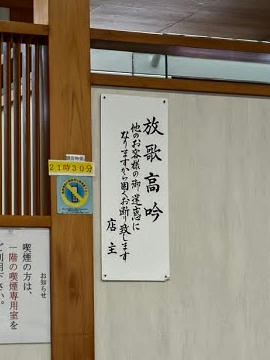 放歌高吟
他のお客様の御迷惑に
なりますから固くお断り致します
店主
21時30分
お知らせ
喫煙の方は、
一階の喫煙専用室を
ご利用下さい。